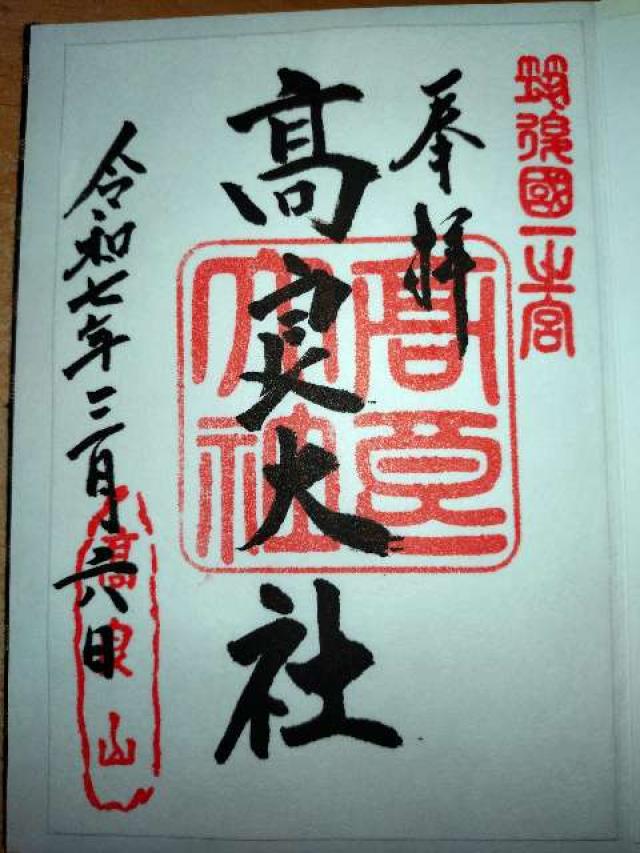 筑後國一之宮
奉拝
髙良大社
高良大社
令和七年三月六日
高良山